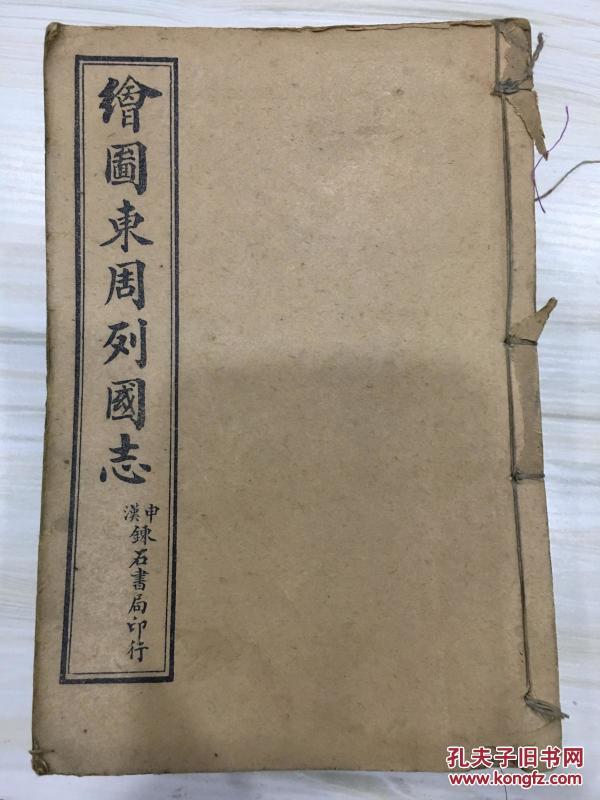 繪圖東周列國志
申漢鍊石書局印行
孔夫子旧书网
www.kongfz.com